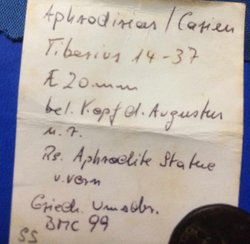 Aphrodisias / Carien
Tiberius 14-37
Æ 20mm
bel. Kopf d. Augustus
n. r.
Rs. Aphrodite Statue
v. vorn
Griech. Umschr.
BMC 99
SS